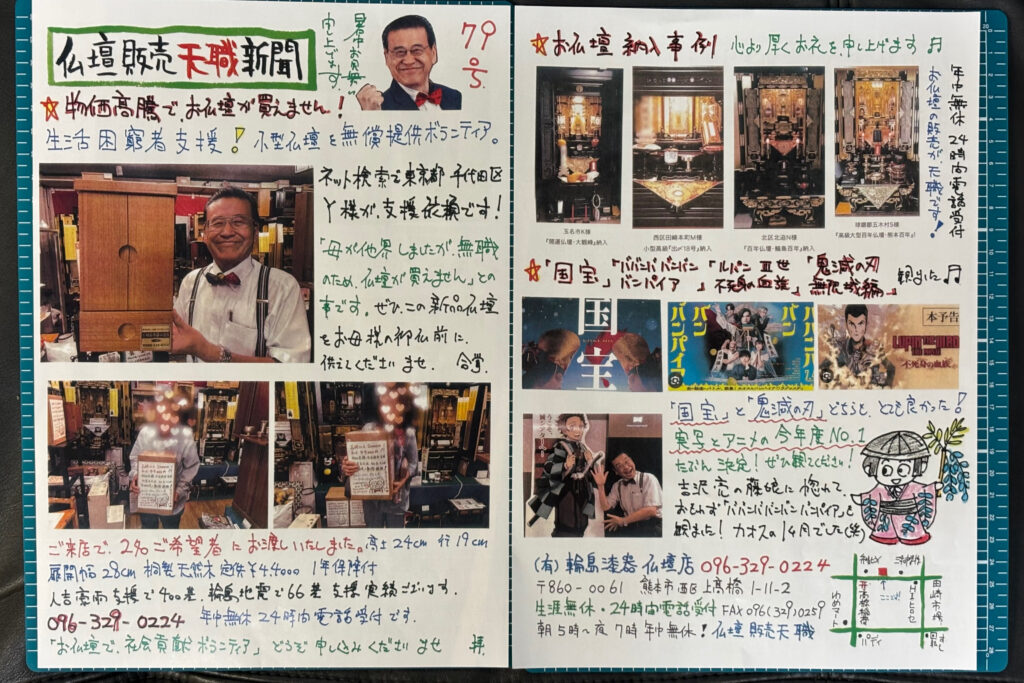 仏壇販売天職新聞
暑中お見舞い
申し上げます。
79号
☆物価高騰でお仏壇が買えません!
生活困窮者支援!小型仏壇を無償提供ボランティア。
ネット検索で東京都千代田区
Y様が支援依頼です!
「母が他界しましたが、無職
のため、仏壇が買えません」との
事です。ぜひこの新品仏壇
をお母様の御仏前に、
供えてくださいませ 合掌.
ご来店で、2名ご希望者にお渡しいたしました。高さ24cm 行19cm
扉開幅28cm 桐製天然木 定価¥44000 1年保障付
人吉豪雨支援で400基、輪島地震で66基 支援実績ございます。
096-329-0224 年中無休24時間電話受付です。
「お仏壇で、社会貢献ボランティア」どうぞ申しくみくださいませ 拝.
☆お仏壇納入事例 心より厚くお礼を申し上げます♬
年中無休 24時間電話受付
お仏壇の販売が天職です!
玉名市K様
『開運仏壇・大観峰』納入
西区田崎本町M様
小型高級『出〆18号』納入
北区北迫N様
『百年仏壇・輪島百年』納入
球磨郡五木村S様
『高級大型百年仏壇・熊本百年』
☆「国宝」「ババンババンバンバンパイア」「ルパン三世 不死身の血族」「鬼滅の刃 無限城編」観ました♬
国宝
バンパイア
バババン
本予告
LUPIN THE IIIRD
THE MOVIE
不死身の血族
「国宝」と「鬼滅の刃」どちらも、とても良かった!
実写とアニメの今年度No.1
たぶん決定!ぜひ観てください!
吉沢亮の藤娘に惚れて、
おもわず「ババンババンバンバンパイア」も
観ました!カオスの1ヶ月でした(笑)
(有)輪島漆器仏壇店 096-329-0224
〒860-0061 熊本市西区上高橋1-11-2
生涯無休・24時間電話受付 FAX096(329)0259
朝5時~夜7時年中無休!仏壇販売天職
ここだよ!
高橋稲荷
ゆめマート
田崎市場